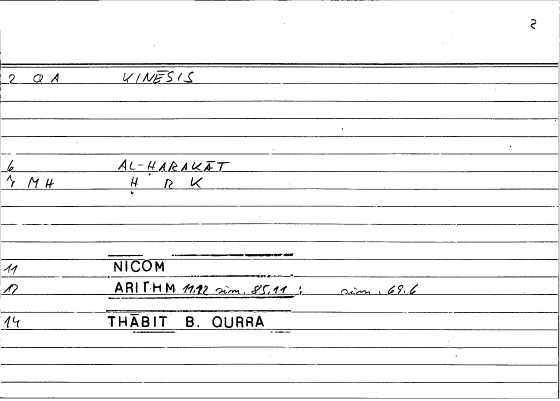 2
2 Q A KINĒSIS
6 AL-ḤARAKĀT
7 M H Ḥ R K
11 NICOM
12 ARITHM 11.12 sim. 85.11 ; sim. 69.6
14 THĀBIT B. QURRA